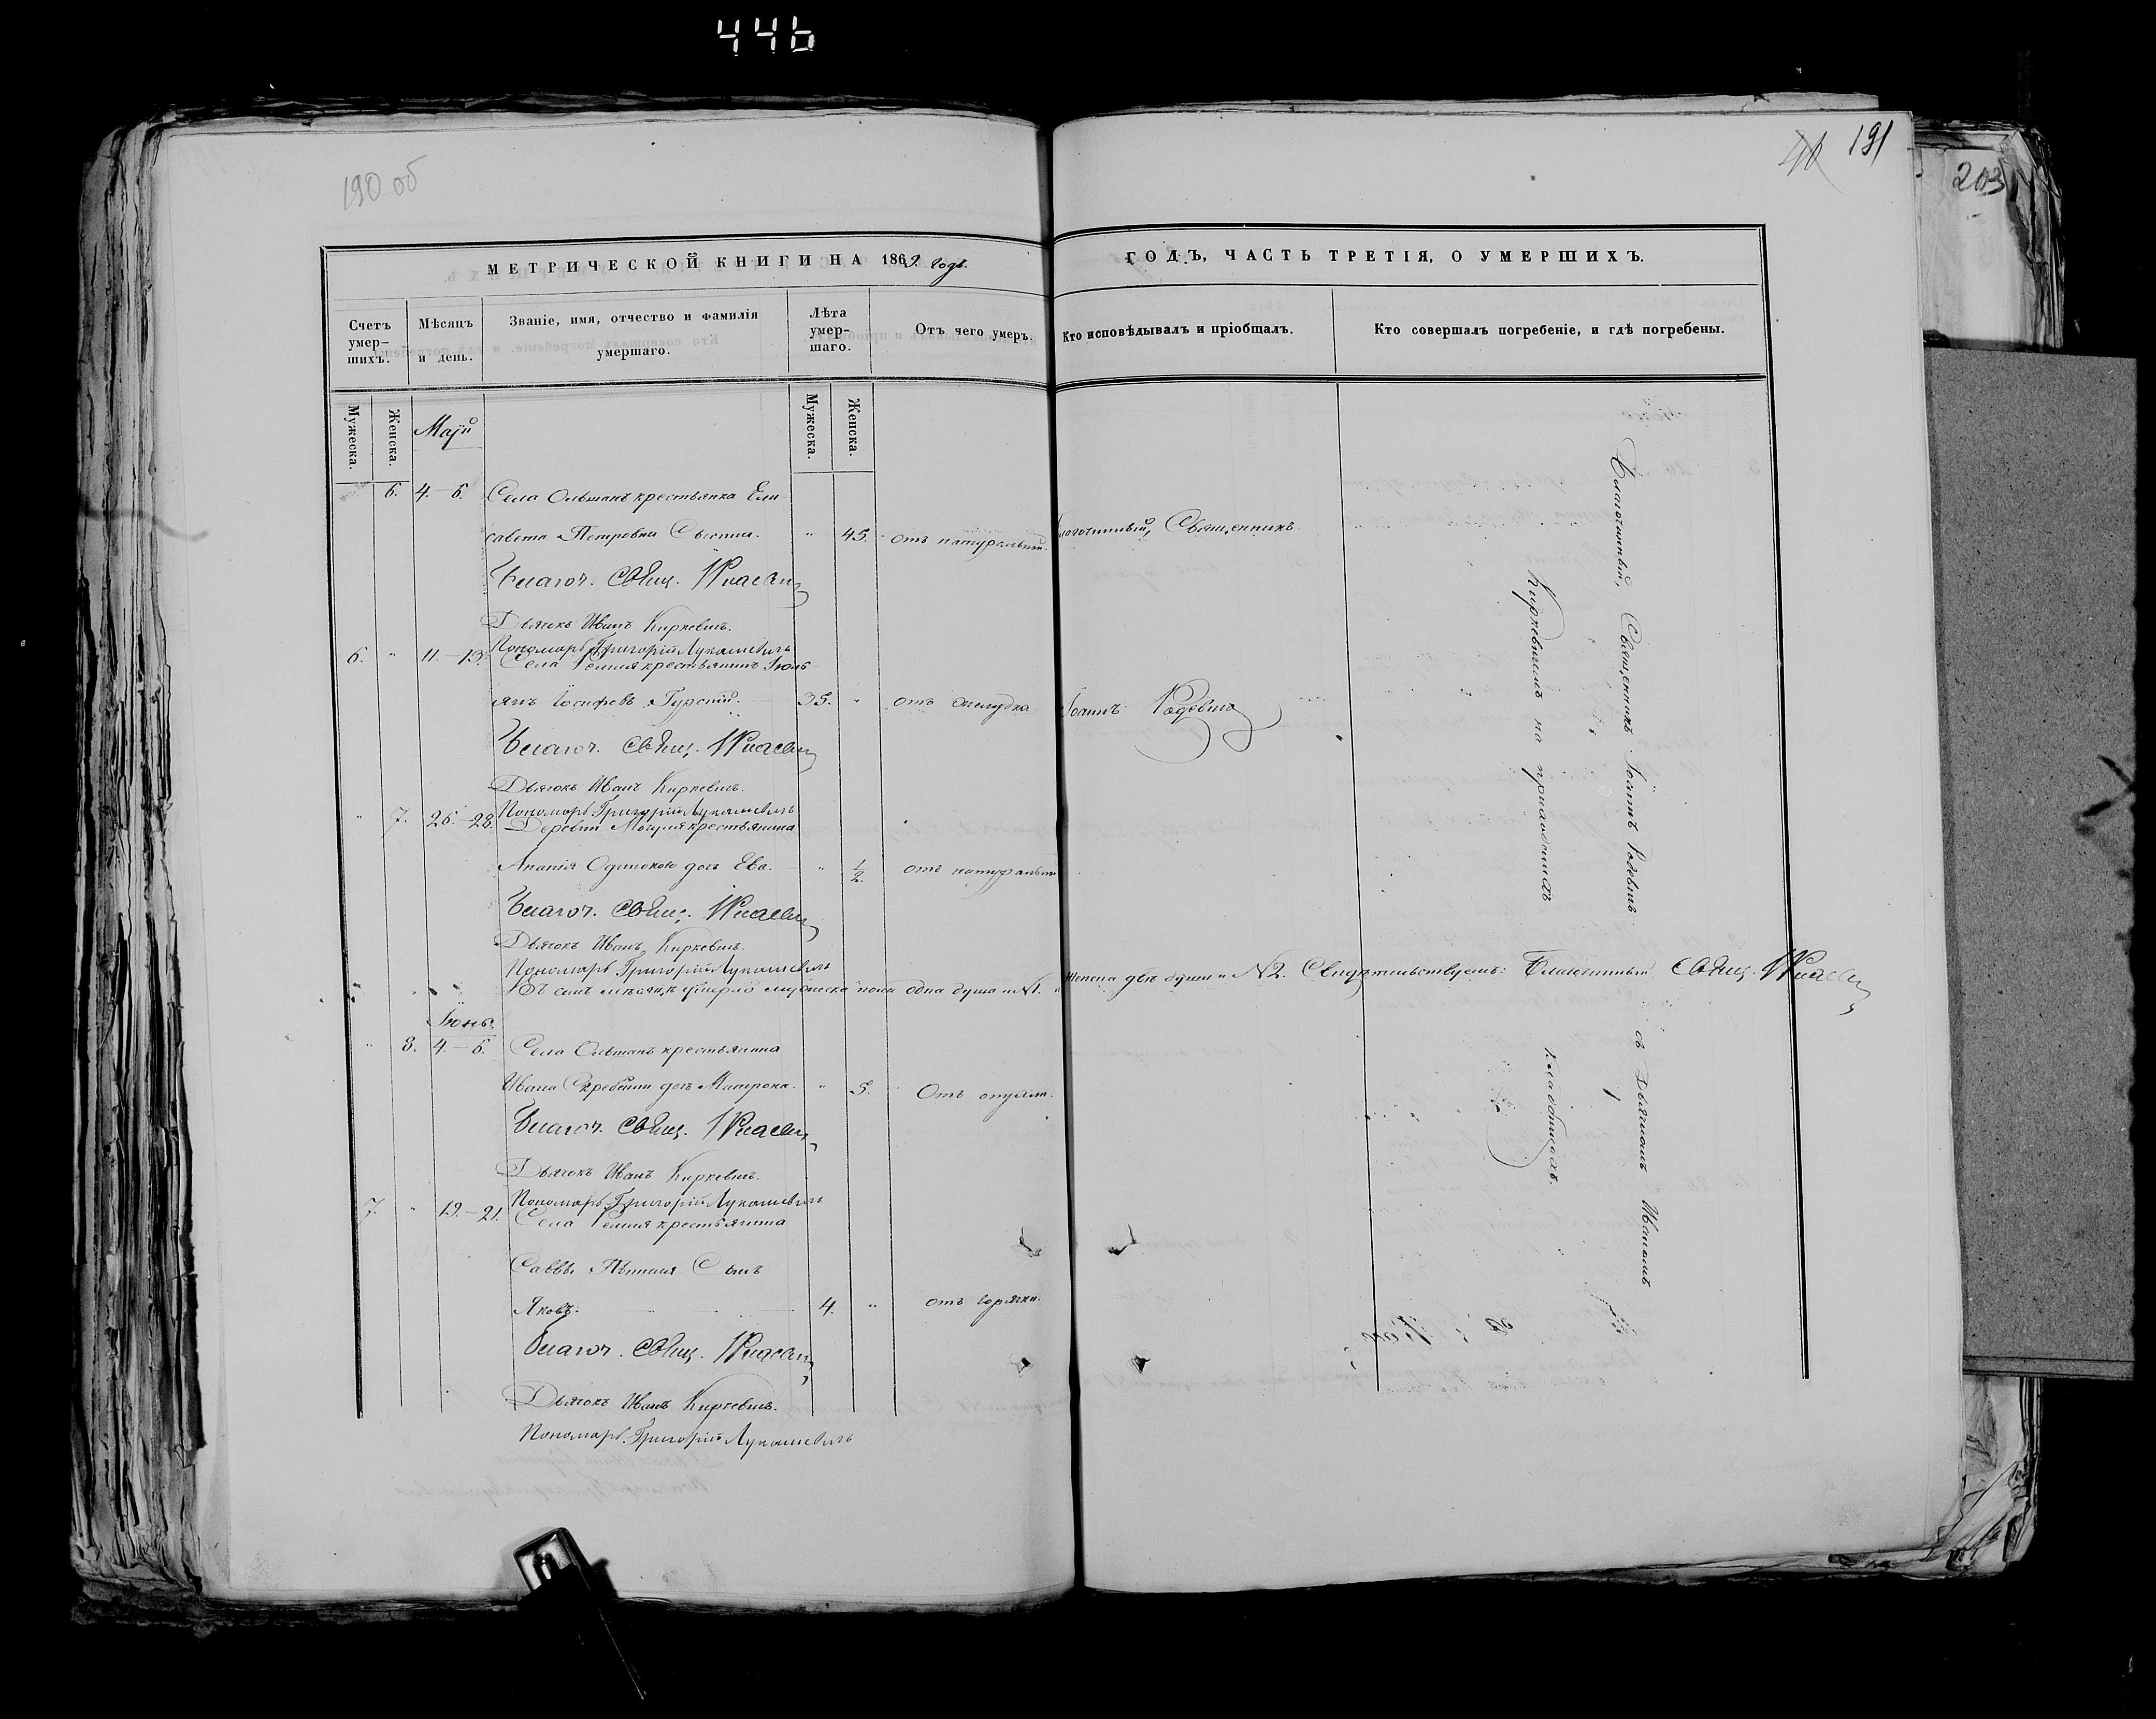 446
190 об
41 191
203
МЕТРИЧЕСКОЙ КНИГИ НА 1869. годъ.
ГОДЪ, ЧАСТЬ ТРЕТІЯ, О УМЕРШИХЪ.
Счетъ умер-шихъ.
Мѣсяцъ и день.
Званіе, имя, отчество и фамилія умершаго.
Лѣта умер-шаго.
Отъ чего умеръ.
Кто исповѣдывалъ и пріобщалъ.
Кто совершалъ погребеніе, и гдѣ погребены.
Мужеска. Женска.
Маій
Мужеска. Женска.
6. 4.-6. Села Ольшанъ крестьянка Ели-
савета Петровна " 45. отъ натуральной. Благочинный, Священникъ
Благоч. Свящ.
Дьячокъ Иванъ Киркевичъ.
Пономарь Григорій Лукашевичъ
6. " 11.-13. Села Ремля крестьянинъ Іюль-
янъ Іосифовъ Гурскій. 35. " отъ желудка Іоаннъ Родевичъ
Благоч. Свящ.
Дьячокъ Иванъ Киркевичъ.
Пономарь Григорій Лукашевичъ
" 7. 26.-28. Деревни крестьянина
Ананія дочь Ева. " 1/2. отъ натуральной
Благоч. Свящ.
Дьячокъ Иванъ Киркевичъ.
Пономарь Григорій Лукашевичъ
Въ семъ мѣсяцѣ умерло мужеска пола одна душа "№1. Женска двѣ души "№2. Свидѣтельствуемъ: Благочинный Свящ.
Іюнь.
" 8. 4.-6. Села Ольшанъ крестьянина
Ивана дочь Матрона. " 5. Отъ опухли.
Благоч. Свящ.
Дьячокъ Иванъ Киркевичъ.
Пономарь Григорій Лукашевичъ
7. " 19.-21. Села Ремля крестьянина
Саввы Сынъ
Яковъ. 4. " отъ горячки.
Благоч. Свящ.
Дьячокъ Иванъ Киркевичъ.
Пономарь Григорій Лукашевичъ
Благочинный, Священникъ Іоаннъ Родевичъ съ Дьячкомъ Иваномъ
Киркевичемъ на приходскихъ кладбищахъ.